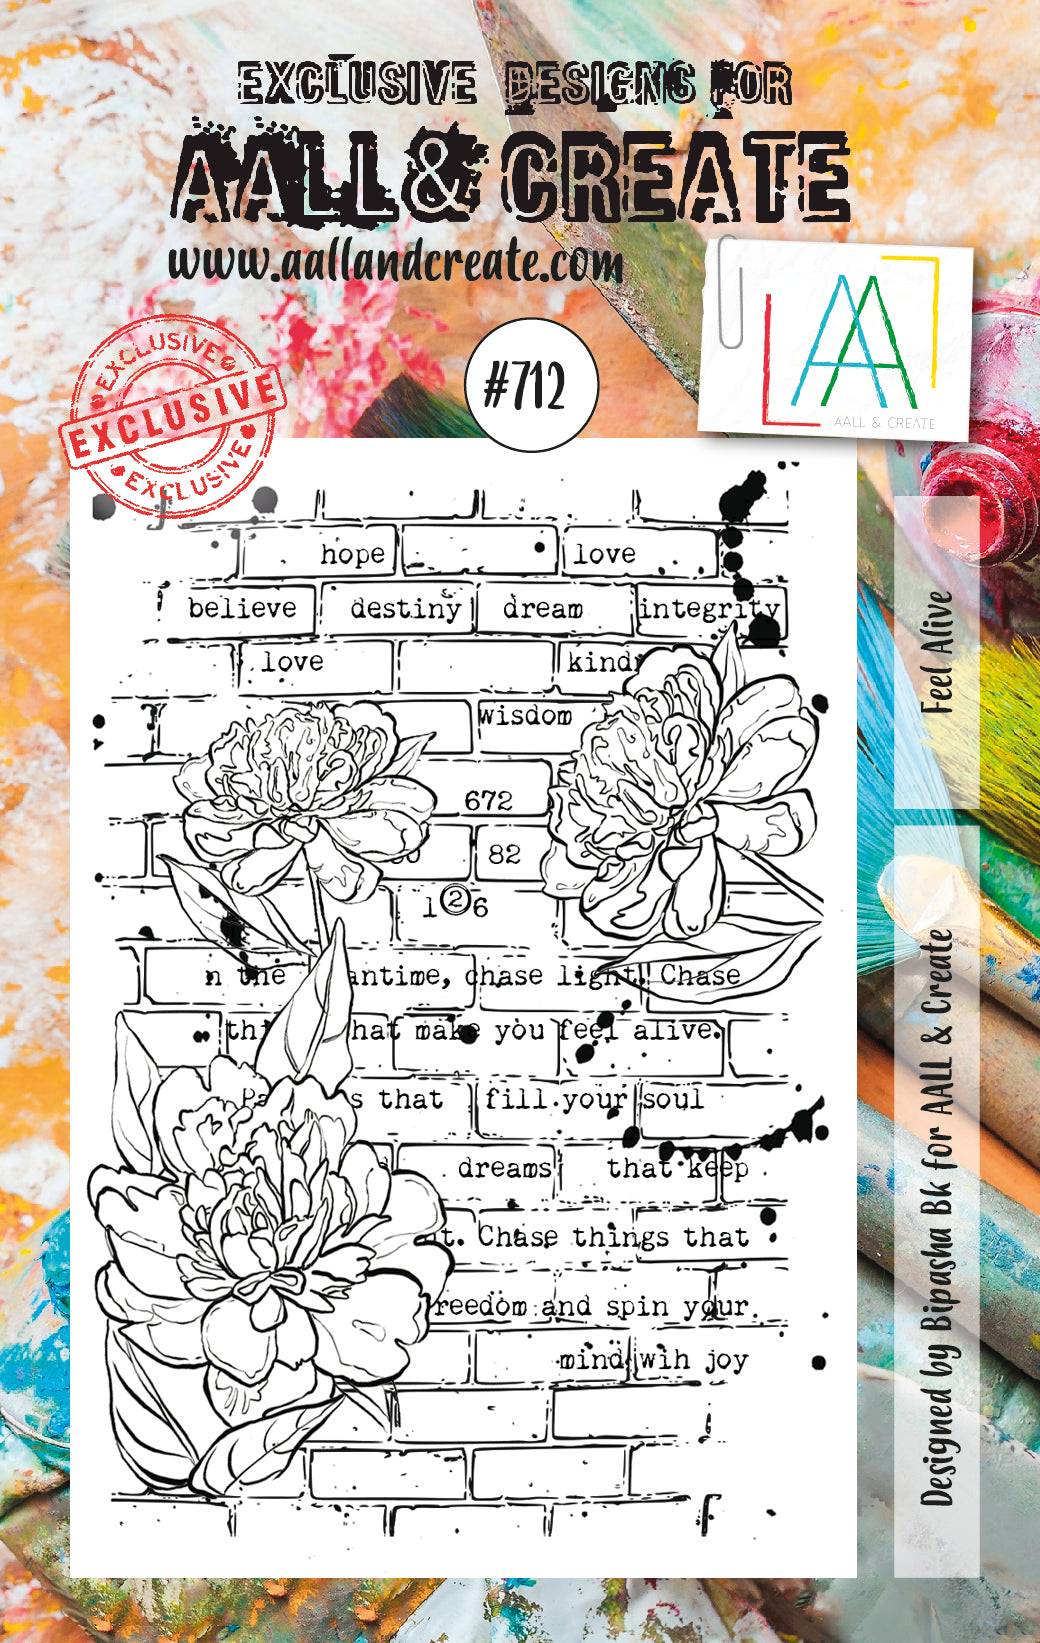 EXCLUSIVE DESIGNS FOR
AALL & CREATE
www.aallandcreate.com
AA
AALL & CREATE
EXCLUSIVE
EXCLUSIVE
EXCLUSIVE
#712
hope love
believe destiny dream integrity
love kind
wisdom
672
82
126
n the antime, chase light. Chase
thi hat make you feel alive.
Pa s that fill your soul
dreams that keep
t. Chase things that
reedom and spin your
mind wih joy
Feel Alive
Designed by Bipasha Bk for AALL & Create